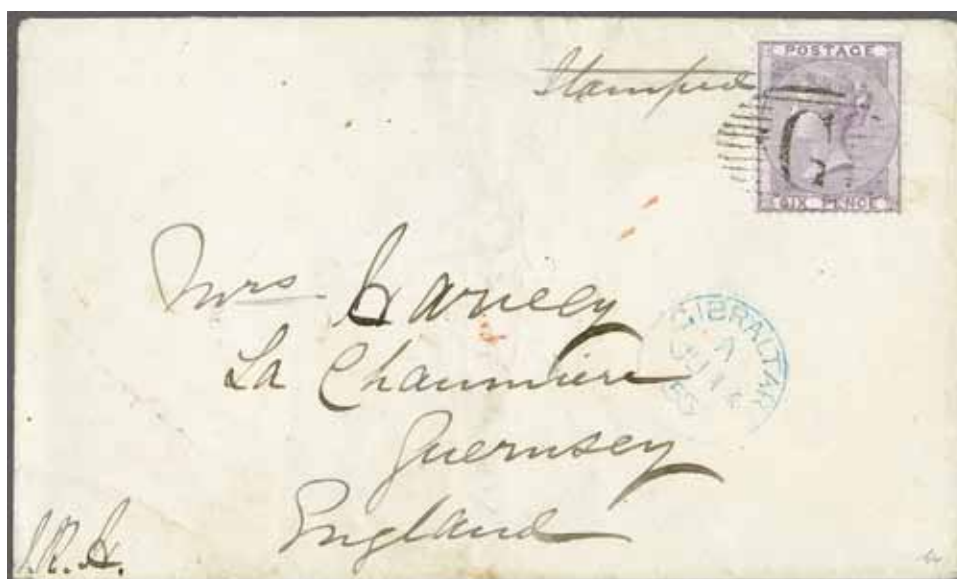 Stamped
POSTAGE
G
SIX PENCE
Mrs. Harvey
La Chaumière
Guernsey
England
GIBRALTAR
A
59
J.R.H.